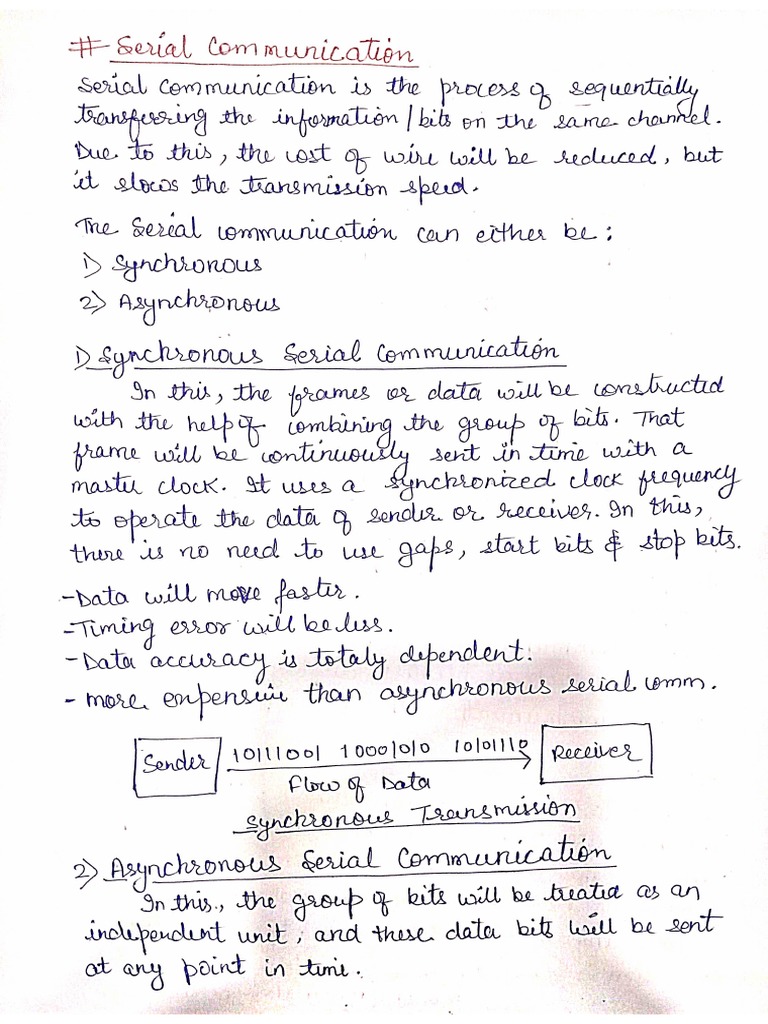 # Serial Communication
Serial Communication is the process of sequentially
transferring the information/bits on the same channel.
Due to this, the cost of wire will be reduced, but
it slows the transmission speed.
The Serial communication can either be:
1) Synchronous
2) Asynchronous
1) Synchronous Serial Communication
In this, the frames or data will be constructed
with the help of combining the group of bits. That
frame will be continuously sent in time with a
master clock. It uses a synchronized clock frequency
to operate the data of sender or receiver. In this,
there is no need to use gaps, start bits & stop bits.
- Data will move faster.
- Timing error will be less.
- Data accuracy is totaly dependent.
- more expensive than asynchronous serial comm.
Sender 10111001 10001010 10101110 Receiver
Flow of Data
Synchronous Transmission
2) Asynchronous Serial Communication
In this., the group of bits will be treated as an
independent unit, and these data bits will be sent
at any point in time.